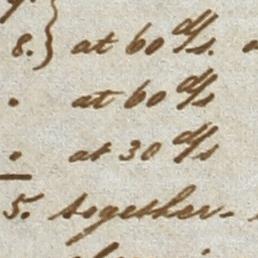 8.} at 60 d/s.
. at 60 d/s
. at 30 d/s
5. together.